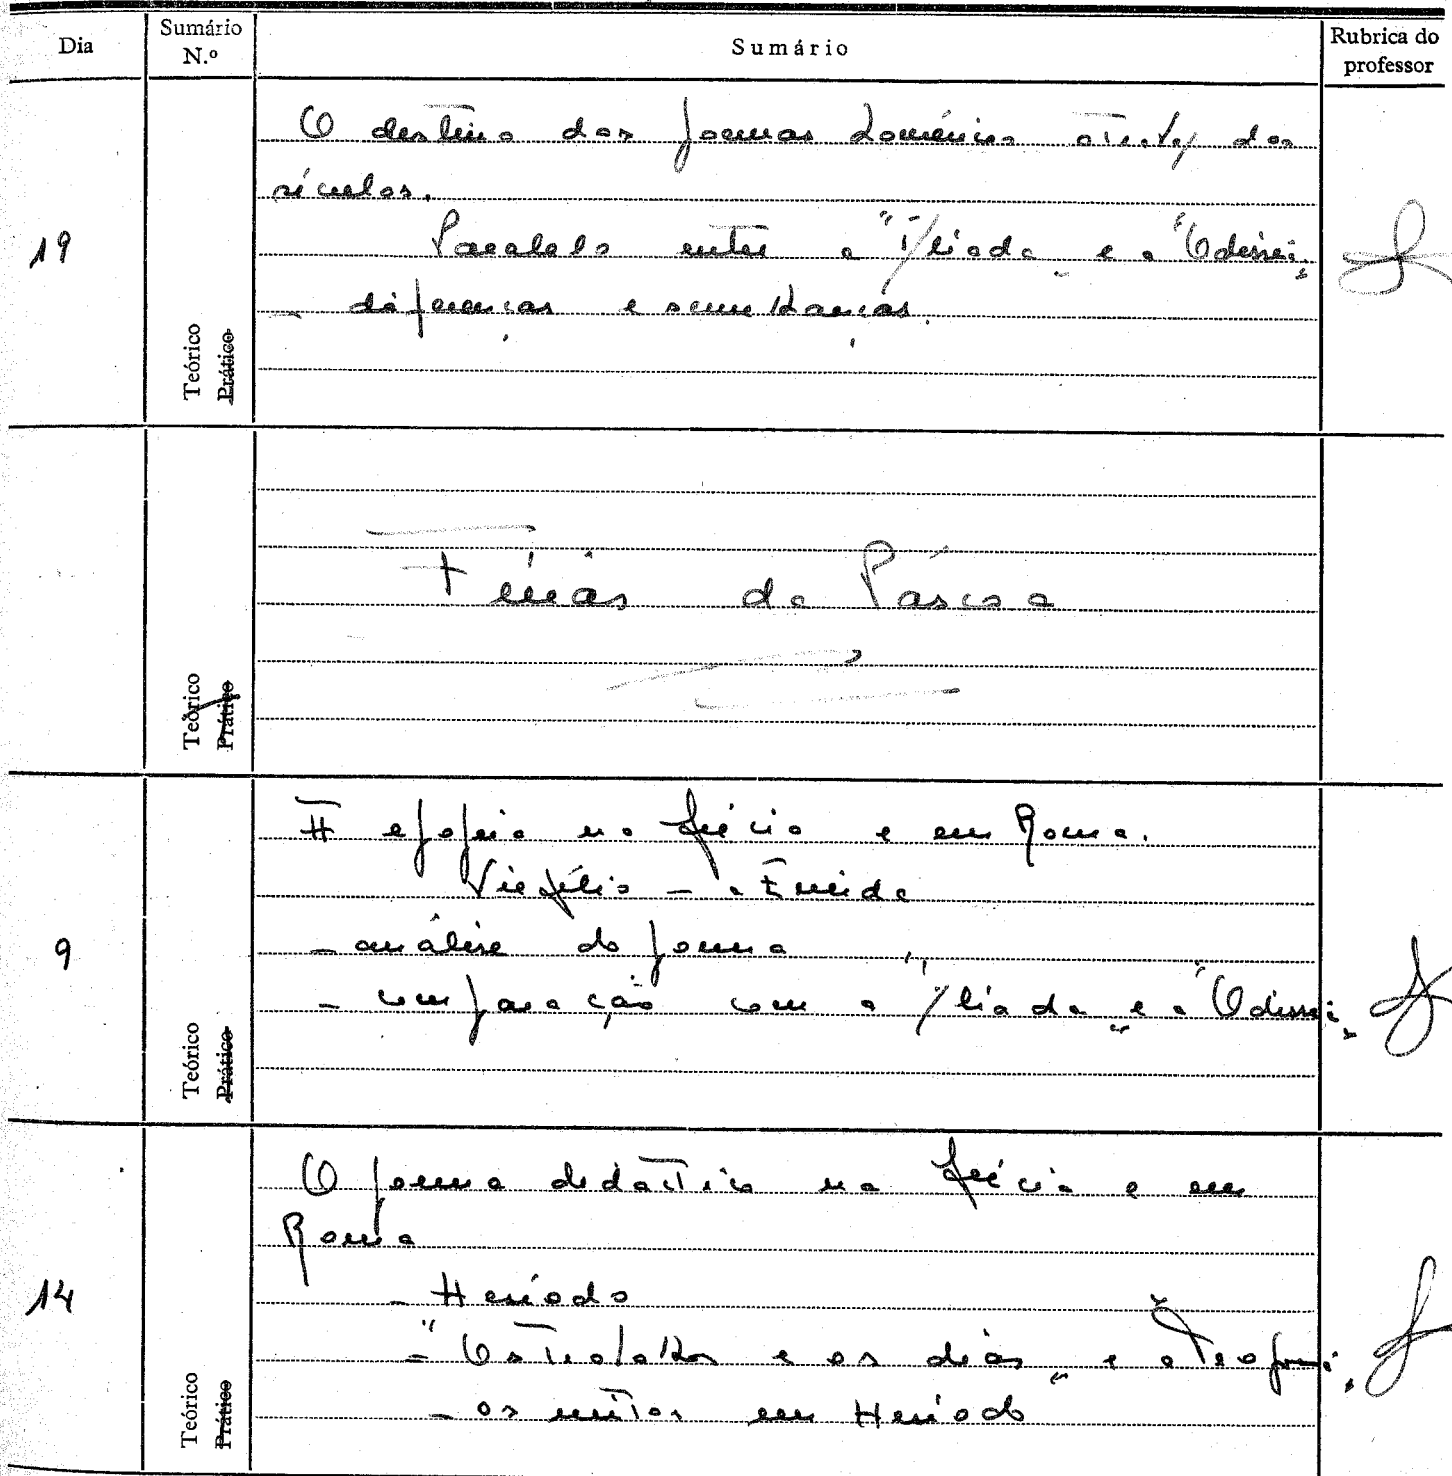 Dia
Sumário N.º
Sumário
Rubrica do professor
19
Teórico
Prático
O destino dos poemas homéricos através dos
séculos.
Paralelo entre a "Ilíada" e a "Odisseia"
- diferenças e semelhanças.
Teórico
Prático
Férias da Páscoa
9
Teórico
Prático
A epopeia na Grécia e em Roma.
Virgílio - a Eneida
- análise do poema
- comparação com a "Ilíada" e a "Odisseia"
14
Teórico
Prático
O poema didáctico na Grécia e em
Roma
- Hesíodo
- "Os Trabalhos e os dias" e a "Teogonia"
- os mitos em Hesíodo